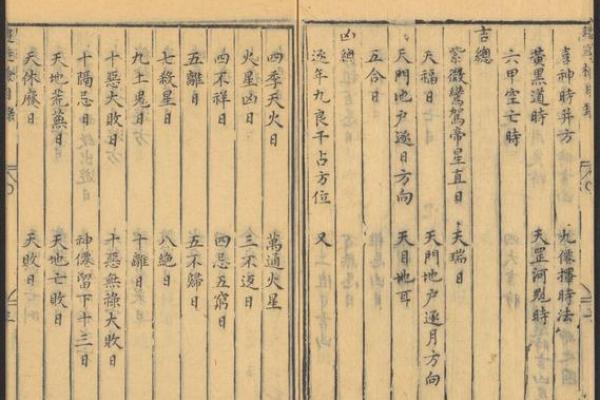 喜神時并方　九僊擇時法
黃黑道時　天罡河魁時
六甲空亡時
吉總
紫微鸞駕帝星直日　天瑞日
天福日　天門地户逐月方向
天門地户逐日方向　天目地耳
五合日
凶總
逐年九良干占方位　又
四季天火日　萬通火星
火星凶日　三不返日
四不祥日　四忌五窮日
五離日　五不歸日
七殺星日　八絶日
九土鬼日　十離日
十惡大敗日　十惡無祿大敗日
十陽忌日　神僊留下十三日
天地荒蕪日　天地亡敗日
天休廢日　天敗日